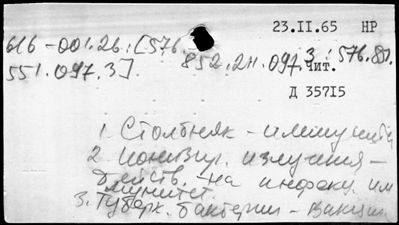 23.II.65 НР
616-001.26:[576.
852.211.097.3:576.8).
551.097.3].
Чит.
Д 35715
1. Столбняк - иммунитет
2. ионизир. излучения -
действ. на инфекц. им
мунитет.
3. Туберк. бактерии - Вакцин